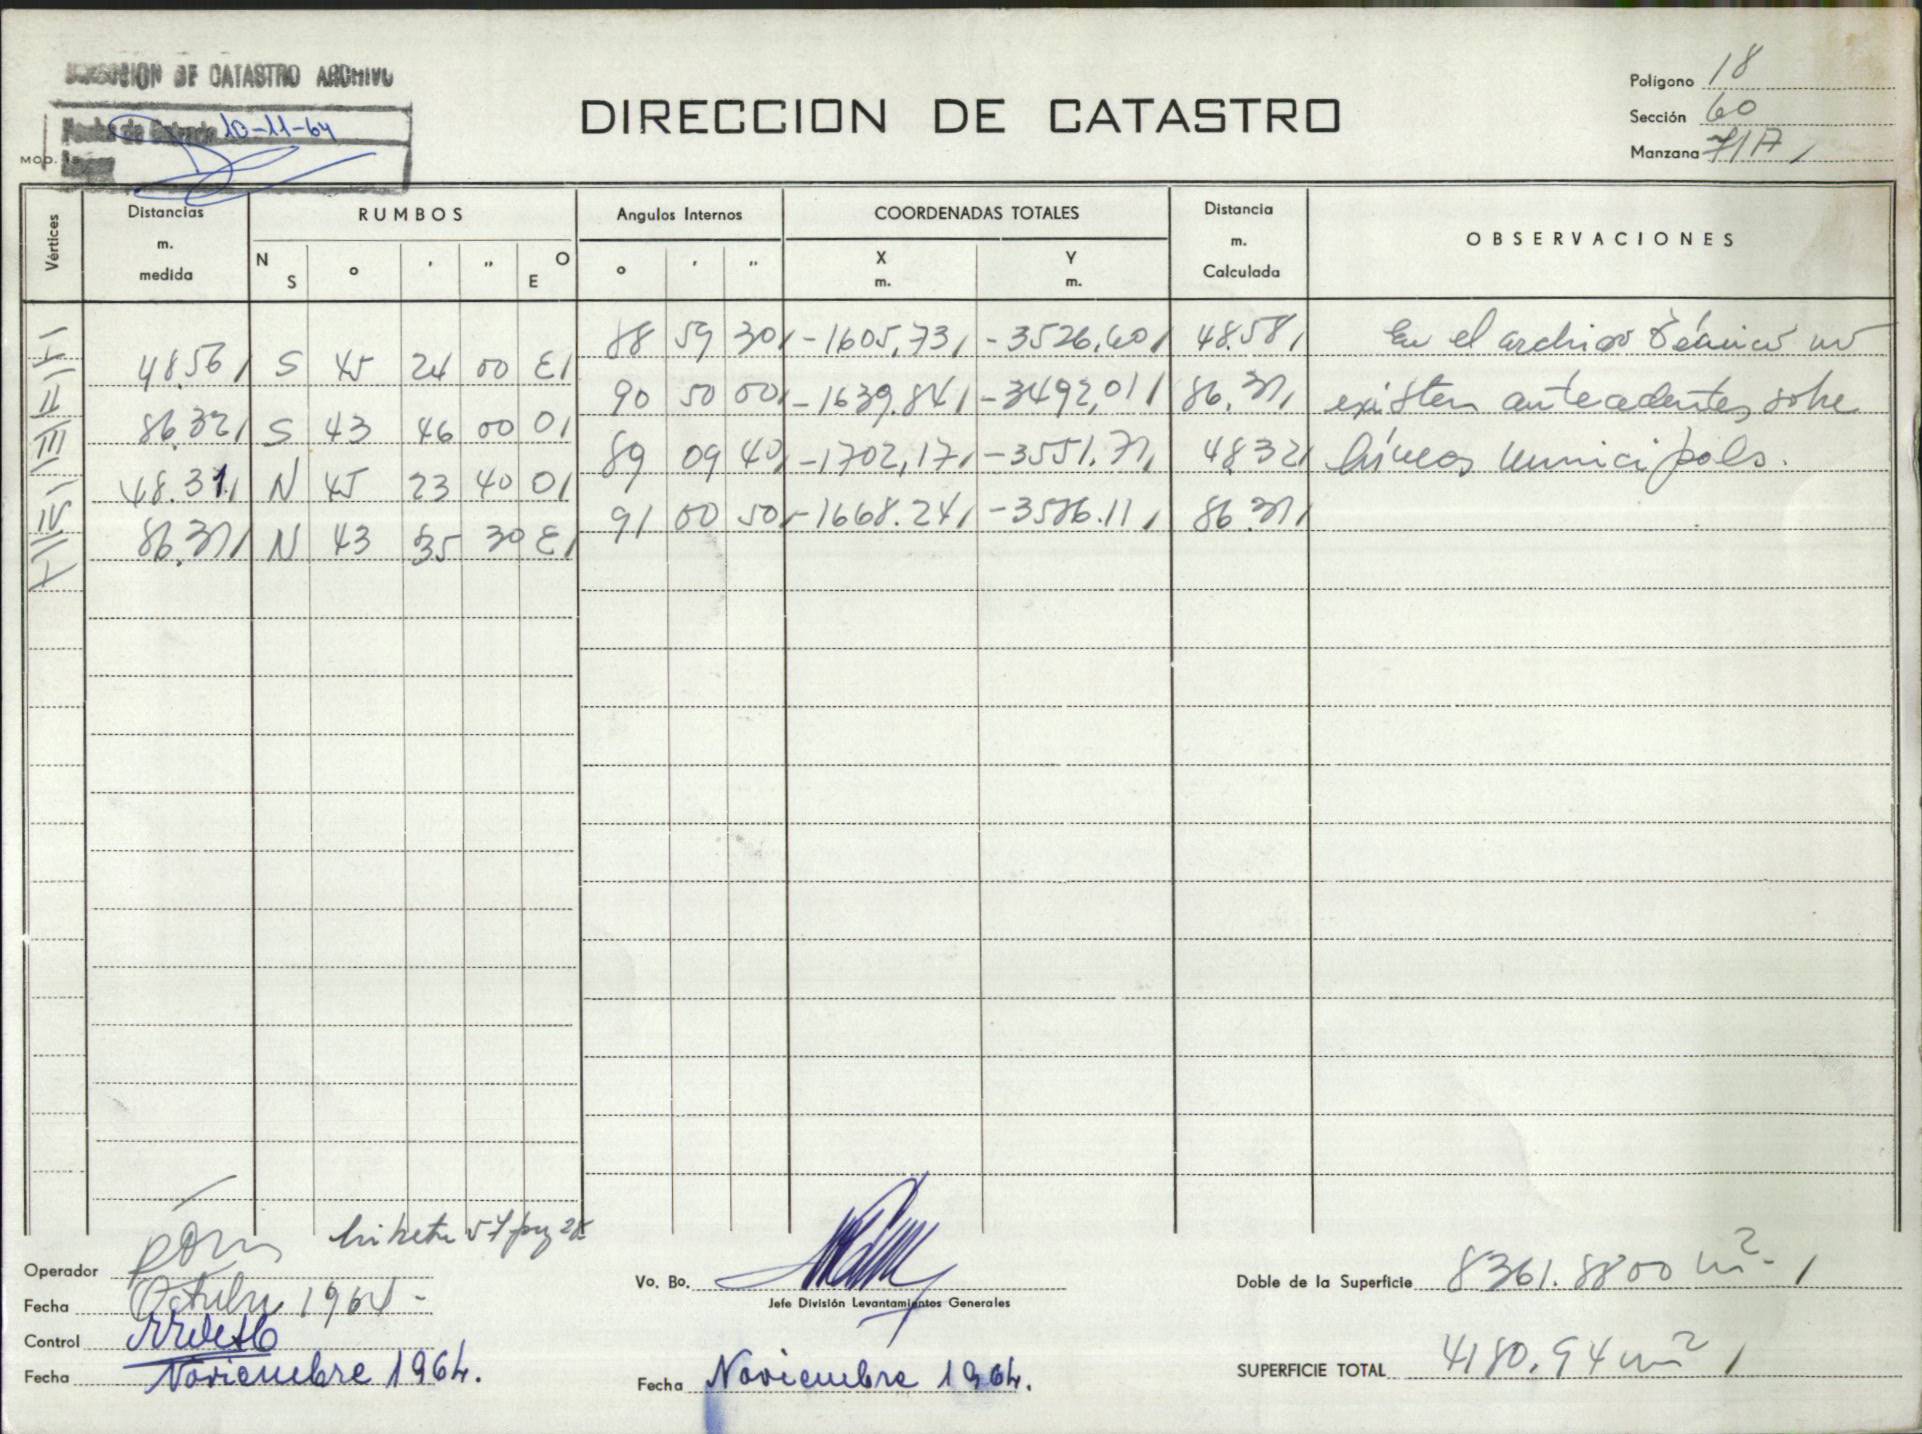 DIRECCION DE CATASTRO ARCHIVO
Fecha de Entrada 10-11-64
MOD.
DIRECCION DE CATASTRO
Polígono 18
Sección 60
Manzana 71A
Vértices
Distancias
m.
medida
RUMBOS
N S ° ' " E O
Angulos Internos
° ' "
COORDENADAS TOTALES
X
m.
Y
m.
Distancia
m.
Calculada
OBSERVACIONES
I 88 59 30 -1605,73 -3526,60 48.58 En el archivo técnico no
48.56 S 45 24 00 E
II 90 50 00 -1639.84 -3492,01 86.31 existen antecedentes sobre
86.32 S 43 46 00 O
III 89 09 40 -1702,17 -3551.71 48.32 líneas municipales.
48.31 N 45 23 40 O
IV 91 00 50 -1668.24 -3586.11 86.31
86.31 N 43 35 30 E
I
Operador
Fecha Octubre 1964-
Control
Fecha Noviembre 1964.
Vo. Bo.
Jefe División Levantamientos Generales
Fecha Noviembre 1964.
Doble de la Superficie 8361.8800 m2
SUPERFICIE TOTAL 4180.94 m2